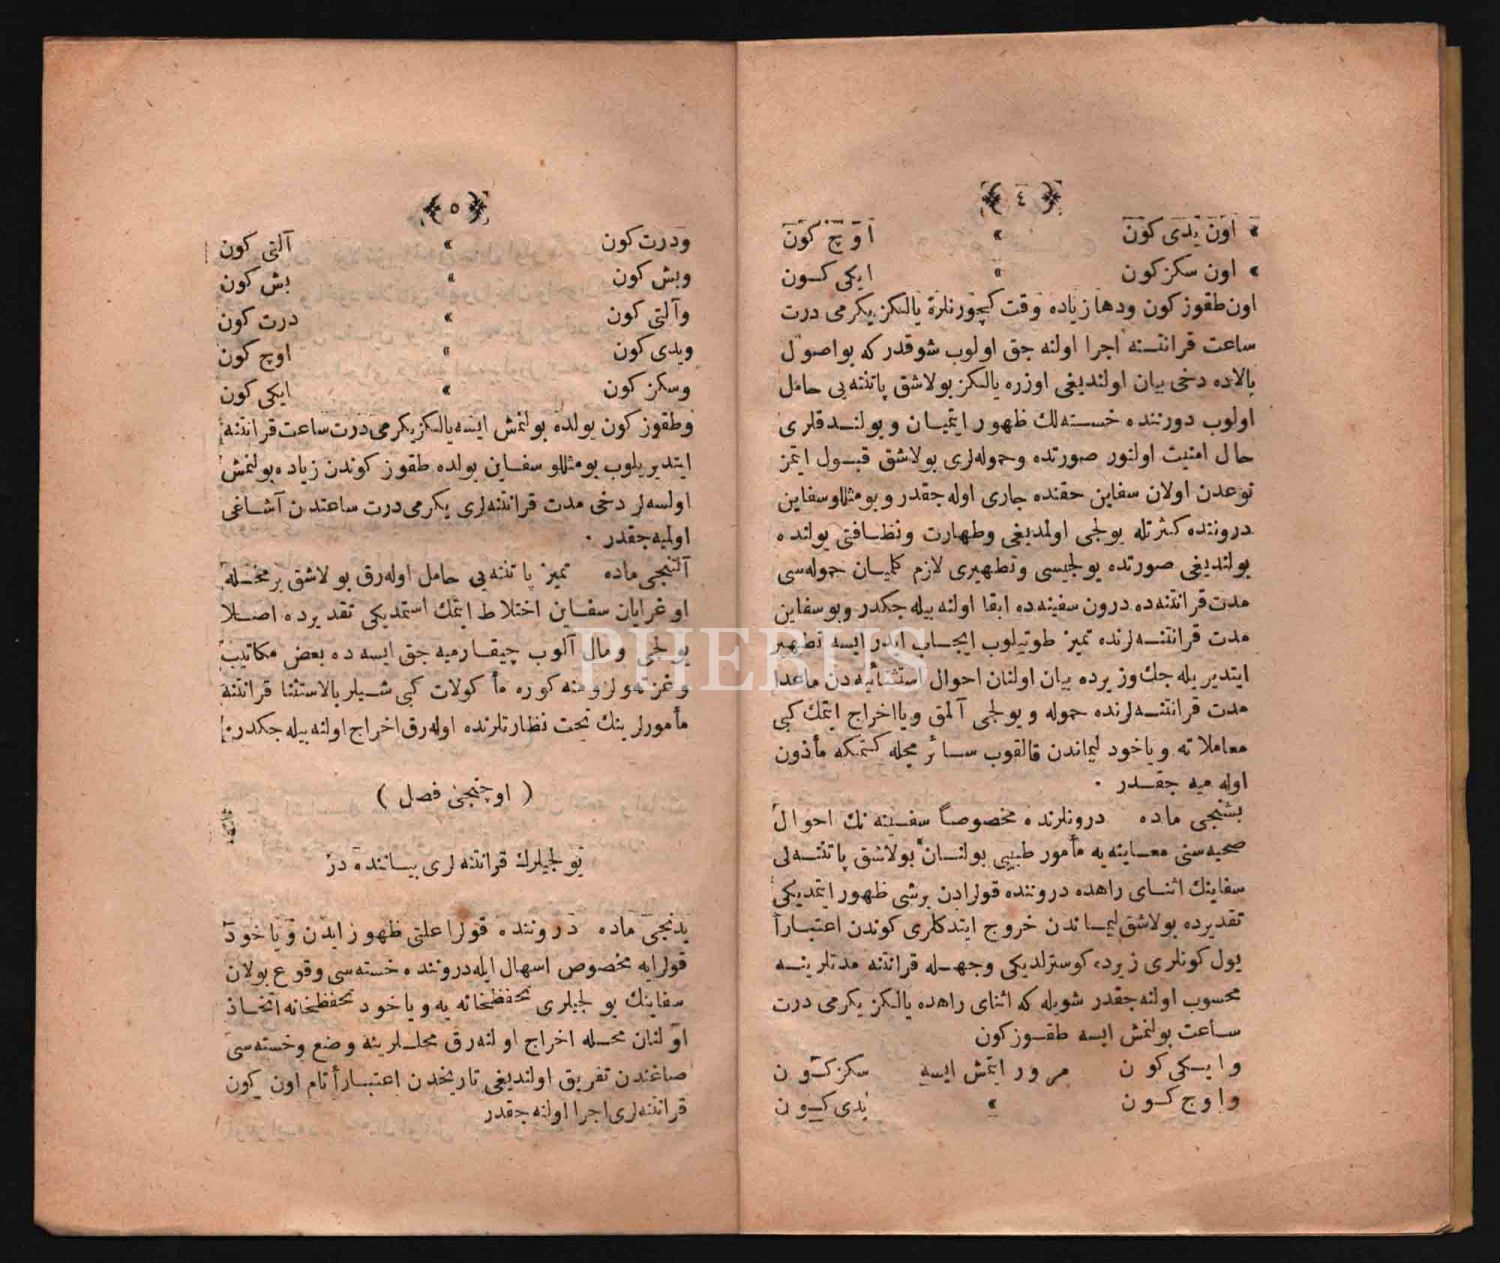 ﴿ ٤ ﴾
» اون یدی كون » اوچ كون
» اون سكز كون » ایكی كون
اون طقوز كون ودها زیاده وقت كچورنلره یالكز یكرمی درت
ساعت قرانتنه اجرا اولنه جق اولوب شوقدر كه بو اصول
بالاده دخی بیان اولندیغی اوزره یالكز بولاشق پاتنته یی حامل
اولوب دورننده خسته لك ظهور ایتمیان و بولندقلری
حال امنیت اولنور صورتده وحموله لری بولاشق قبول ایتمز
نوعدن اولان سفاین حقنده جاری اوله جقدر و بومثللو سفاین
دروننده كثرتله یولجی اولمدیغی وطهارت ونظافتی یولنده
بولندیغی صورتده یولجیسی وتطهیری لازم كلمیان حموله سی
مدت قرانتنه ده درون سفینه ده ابقا اولنه بیله جكدر وبو سفاین
مدت قرانتنه لرنده تمیز طوتیلوب ایجاب ایدر ایسه تطهیر
ایتدیریله جك وزیرده بیان اولنان احوال استثنائیه دن ماعدا
مدت قرانتنه لرنده حموله و یولجی آلمق ویا اخراج ایتمك كبی
معاملاته ویاخود لیماندن قالقوب سائر محله كتمكه مأذون
اوله میه جقدر ٠
بشنجی ماده درونلرنده مخصوصاً سفینه نك احوال
صحیه سنی معاینه یه مأمور طبیبی بولنان بولاشق پاتنته لی
سفاینك اثنای راهده دروننده قولرادن برشی ظهور ایتمدیكی
تقدیرده بولاشق لیماندن خروج ایتدكلری كوندن اعتباراً
یول كونلری زیرده كوسترلدیكی وجهله قرانتنه مدتلرینه
محسوب اولنه جقدر شویله كه اثنای راهده یالكز یكرمی درت
ساعت بولنمش ایسه طقوز كون
وایكی كون مرور ایتمش ایسه سكز كون
واوچ كون » یدی كون
﴿ ٥ ﴾
ودرت كون » آلتی كون
وبش كون » بش كون
وآلتی كون » درت كون
ویدی كون » اوچ كون
وسكز كون » ایكی كون
وطقوز كون یولده بولنمش ایسه یالكز یكرمی درت ساعت قرانتنه
ایتدیریلوب بومثللو سفاین یولده طقوز كوندن زیاده بولنمش
اولسه لر دخی مدت قرانتنه لری یكرمی درت ساعتدن آشاغی
اولمیه جقدر ٠
آلتنجی ماده تمیز پاتنته یی حامل اوله رق بولاشق بر محله
اوغرایان سفاین اختلاط ایتمك استمدیكی تقدیرده اصلا
یولجی ومال آلوب چیقارمیه جق ایسه ده بعض مكاتیب
وغزته ولزومنه كوره مأكولات كبی شیلر بالاستثنا قرانتنه
مأمورلرینك تحت نظارتلرنده اوله رق اخراج اولنه بیله جكدر ٠
( اوچنجی فصل )
یولجیلرك قرانتنه لری بیاننده در
یدنجی ماده دروننده قولرا علتی ظهور ایدن ویاخود
قولرایه مخصوص اسهال ایله دروننده خسته سی وقوع بولان
سفاینك یولجیلری تحفظخانه یه ویاخود تحفظخانه اتخاذ
اولنان محله اخراج اولنه رق محللرینه وضع وخسته سی
صاغندن تفریق اولندیغی تاریخدن اعتباراً تام اون كون
قرانتنه لری اجرا اولنه جقدر
PHEBUS